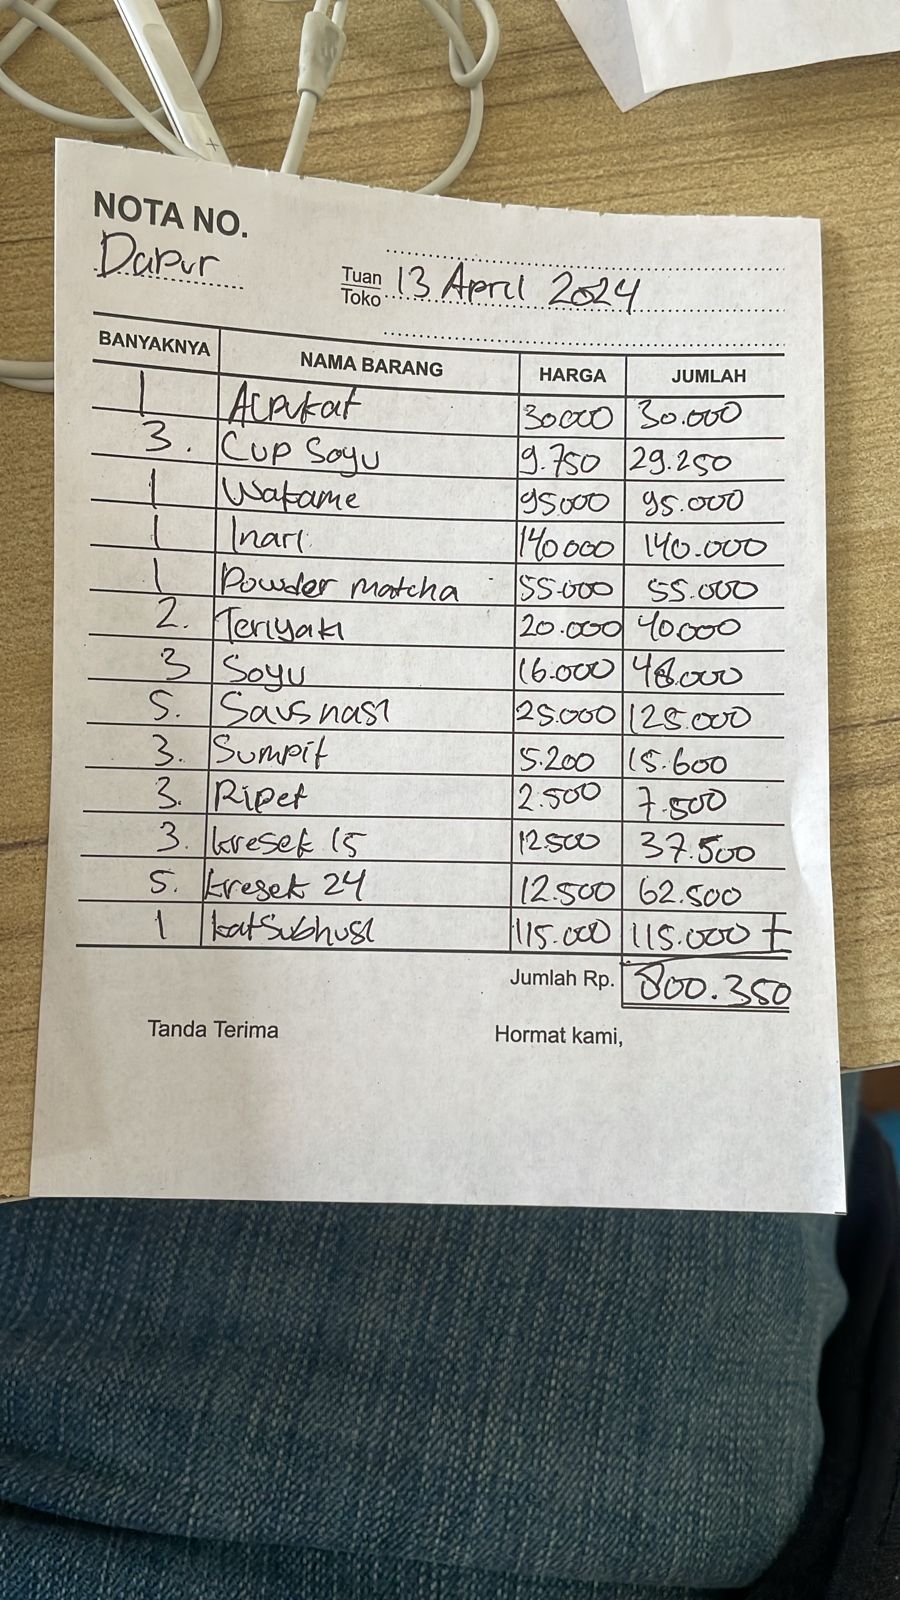 NOTA NO.
Dapur
Tuan
Toko
13 April 2024
BANYAKNYA NAMA BARANG HARGA JUMLAH
1 Alpukat 30000 30.000
3. Cup Soyu 9.750 29.250
1 Wakame 95000 95.000
1 Inari 140000 140.000
1 Powder matcha 55.000 55.000
2. Teriyaki 20.000 40000
3 Soyu 16.000 48.000
5. Saus nasi 25.000 125.000
3. Sumpit 5.200 15.600
3. Ripet 2.500 7.500
3. kresek 15 12500 37.500
5. kresek 24 12.500 62.500
1 katsubhusi 115.000 115.000 +
Jumlah Rp. 800.350
Tanda Terima Hormat kami,